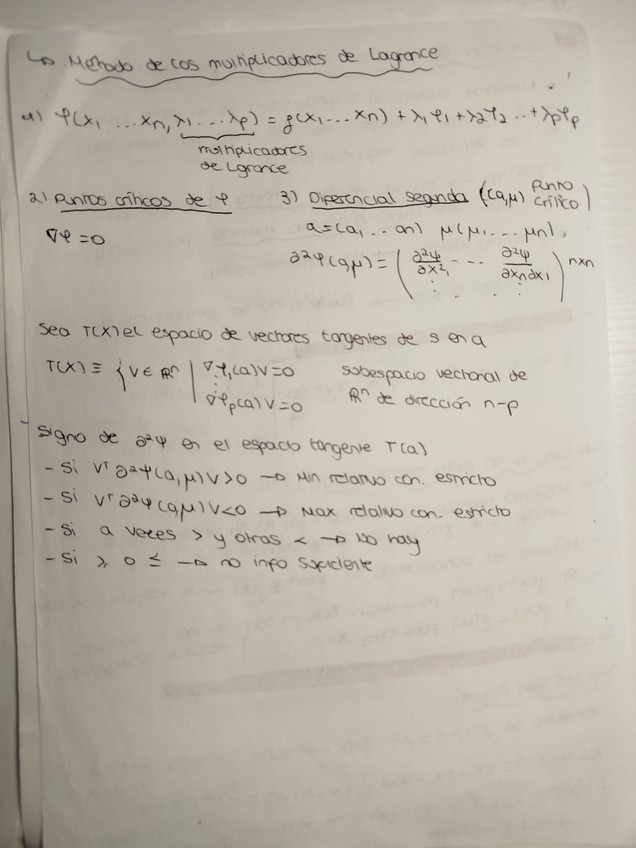 ↳ Método de los multiplicadores de Lagrance
1) φ(x₁ ... xₙ, λ₁ ... λp) = g(x₁ ... xₙ) + λ₁φ₁ + λ₂φ₂ ... + λpφp
multiplicadores
de Lgrance
2) Puntos críticos de φ
∇φ = 0
3) Diferencial segunda ((a,μ) punto crítico)
a = (a₁ ... an) μ(μ₁ ... μn),
∂²φ(a,μ) = ( ∂²φ/∂x²₁ --- ∂²φ/∂xₙ∂x₁ ⋮ . . ⋮ . ) n×n
Sea T(X) el espacio de vectores tangentes de s en a
T(X) ≡ { V ∈ ℝⁿ | ∇φ₁(a)V = 0 ⋮ ∇φp(a)V = 0
subespacio vectorial de
ℝⁿ de dirección n-p
Signo de ∂²φ en el espacio tangente T(a)
- Si Vᵀ ∂²φ(a,μ)V > 0 → Min relativo con. estricto
- Si Vᵀ ∂²φ(a,μ)V < 0 → Max relativo con. estricto
- Si a veces > y otras < → No hay
- Si ≥ o ≤ → no info suficiente